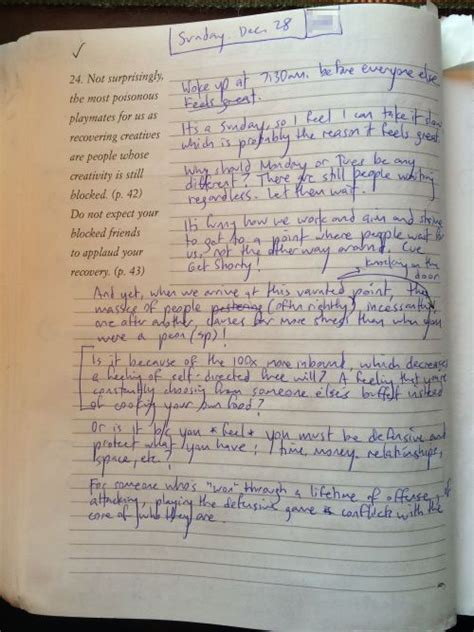 Sunday, Dec. 28
24. Not surprisingly,
the most poisonous
playmates for us as
recovering creatives
are people whose
creativity is still
blocked. (p. 42)
Do not expect your
blocked friends
to applaud your
recovery. (p. 43)
Woke up at 7:30am, before everyone else.
Feels great.
Its a Sunday, so I feel I can take it slow
which is probably the reason it feels great.
Why should Monday or Tues be any
different? There are still people waiting
regardless. Let them wait.
It's funny how we work and aim and strive
to get to a point where people wait for
us, not the other way around. Cue
Get Shorty!
And yet, when we arrive at this vaunted point, the
masses of people (often rightly) knocking on the door
incessantly, one after another, causes far more stress than when you
were a peon (sp)!
Is it because of the 100x more inbound, which decreases
a feeling of self-directed free will? A feeling that you're
constantly choosing from someone else's buffet instead
of cooking your own food?
Or is it b/c you *feel* you must be defensive and
protect what you have: time, money, relationships,
space, etc.?
For someone who's "won" through a lifetime of offense, of
attacking, playing the defensive game is conflicts with the
core of who they are.